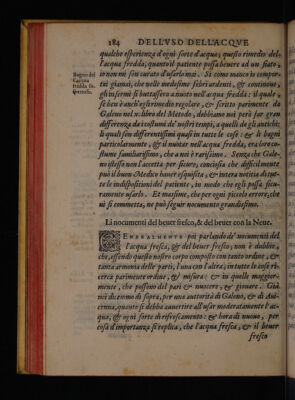 184 DELL'VSO DELL'ACQVE
qualche esperienza d'ogni sorte d'acqua; questo rimedio del-
l'acqua fredda, quanto il patiente possa beuere ad un fiato,
io non mi son curato d'usarlo mai. Si come manco io compor-
tai giamai, che nelle medesime febri ardenti, & continoue,
gli infermi si buttassero a nuoto nell'acqua fredda: il quale,
se ben è anch'egli rimedio regolare, & scritto parimente da
Galeno nel x. libro del Metodo, dobbiamo noi però far gran
differenza da costumi de' nostri tempi, a quelli de gli antichi;
li quali son differentissimi quasi in tutte le cose: & li bagni
particolarmente, & il nuotar nell'acqua fredda, era loro co-
stume familiarissimo, che a noi è rarissimo. Senza che Gale-
no istesso non l'accetta per sicuro, conciosia che difficilmente
può il buon Medico hauer esquisita, & intera notitia di tut-
te le indispositioni del patiente, in modo che egli possa sicu-
ramente usarlo. Et massime, che per ogni piccolo errore, che
ui si commetta, ne può seguire nocumento grandissimo.
Bagno del
l'acqua
fredda so-
spettoso.
Li nocumenti del beuer fresco, & del beuer con la Neue.
GENERALMENTE poi parlando de' nocumenti del
l'acqua fresca, & del beuer fresco, non è dubbio,
che, essendo questo nostro corpo composto con tanto ordine, &
tanta armonia delle parti, l'una con l'altra; in tutte le cose ri-
cerca parimente ordine, & misura: & in quelle maggior-
mente, che possono del pari & nuocere, & giouare. Già
noi dicemmo di sopra, per una autorità di Galeno, & di Aui-
cenna, quanto si debba auuertire all'usar moderatamente l'ac-
qua, & ogni sorte di rifrescamento: & hora di nuouo, per
cosa d'importanza si replica, che l'acqua fresca, & il beuer
fresco